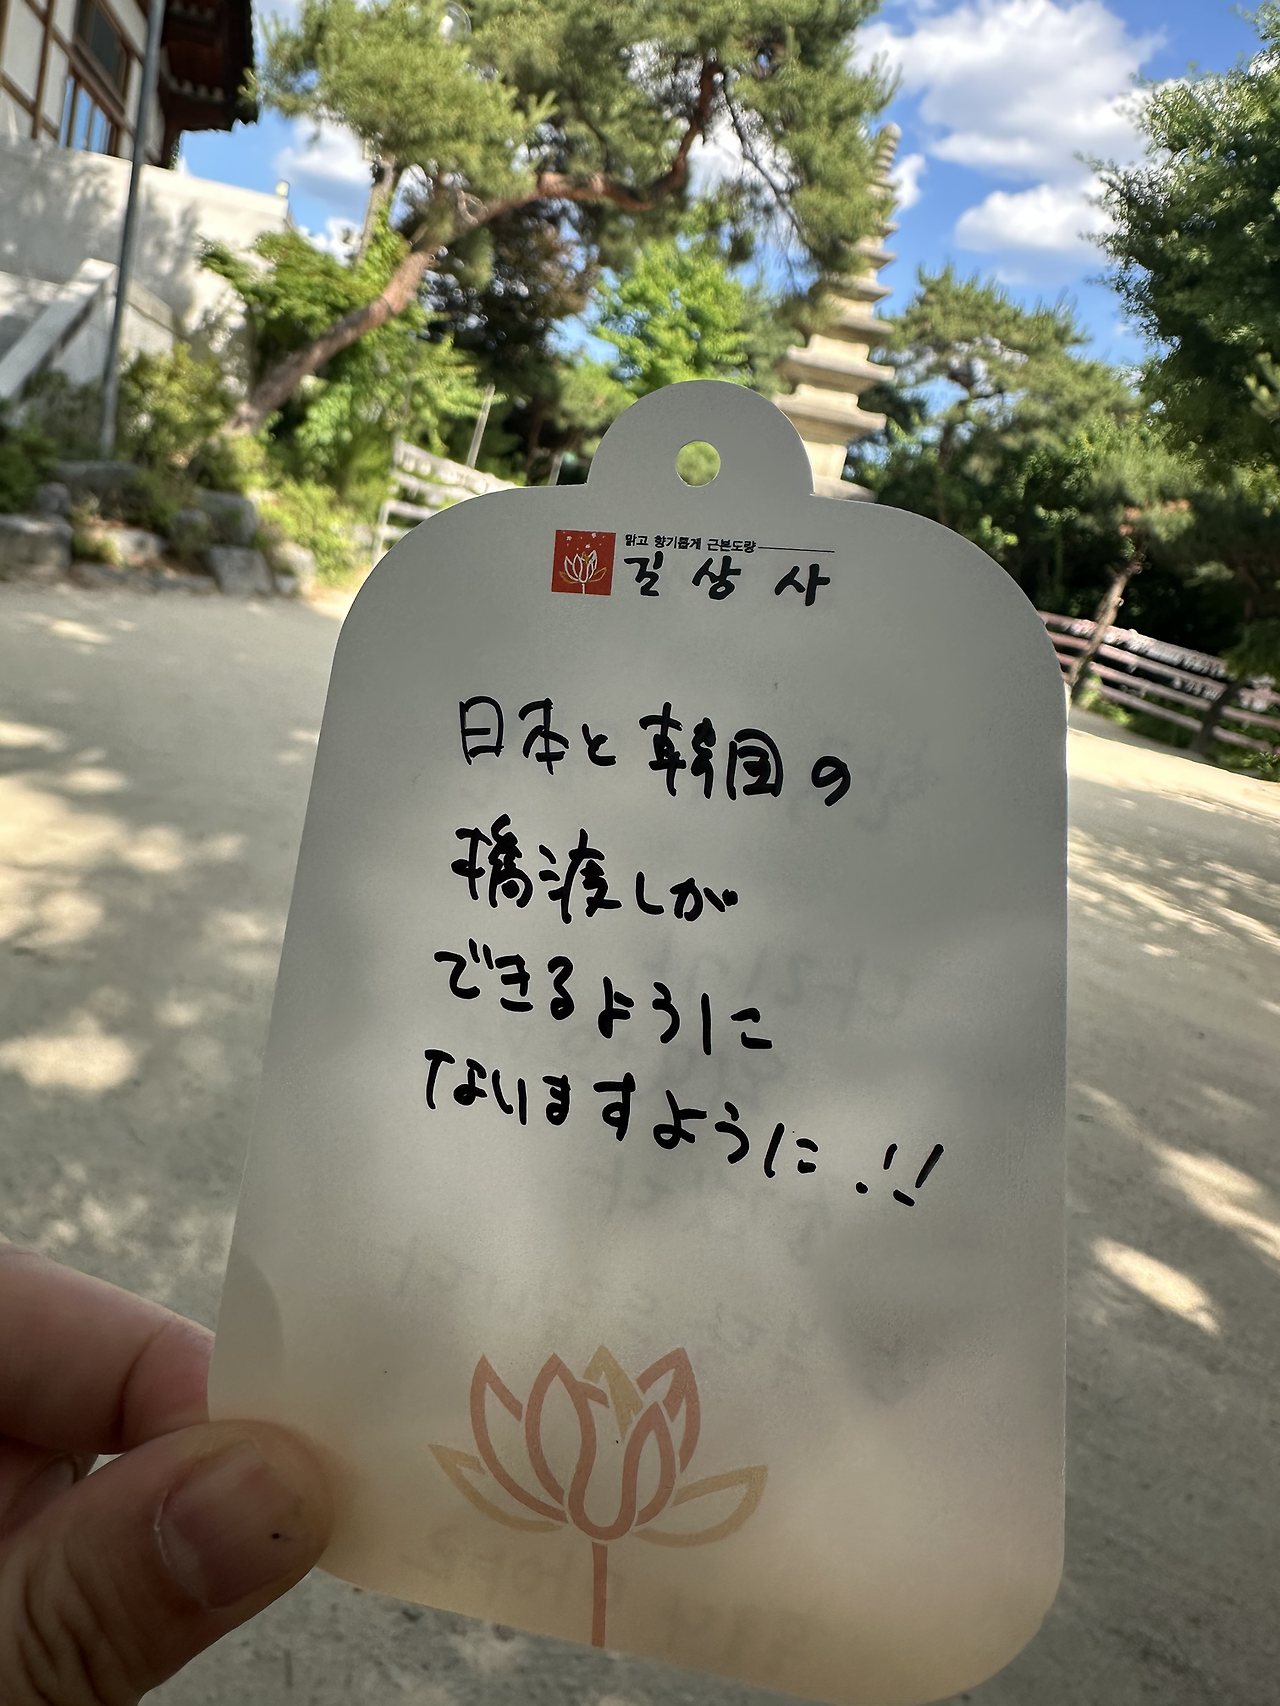 맑고 향기롭게 근본도량
길상사
日本と韓国の
橋渡しが
できるように
なりますように!!